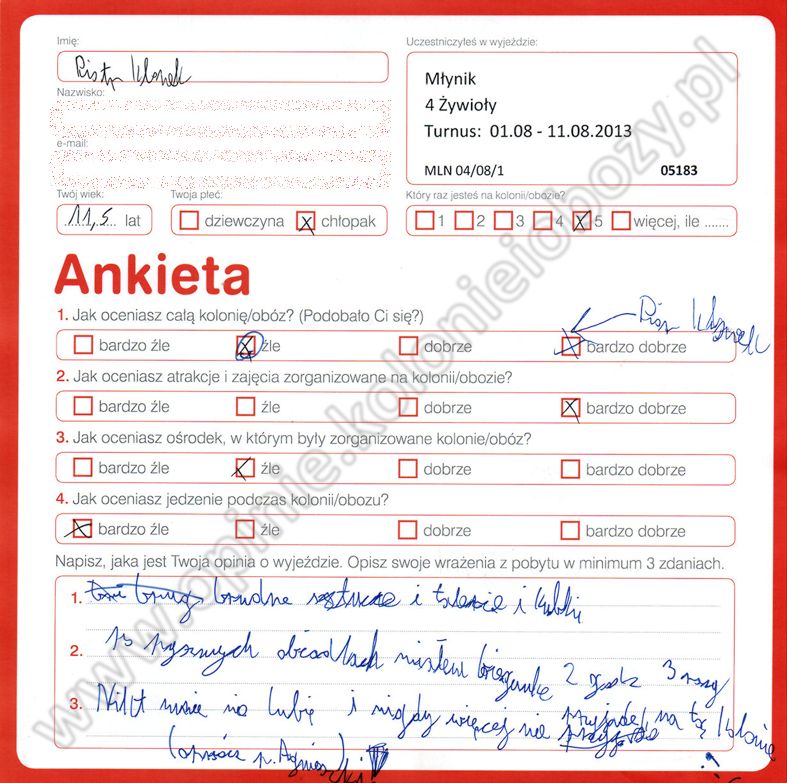 Imię:
Uczestniczyłeś w wyjeździe:
Piotr
Nazwisko:
Młynik
4 Żywioły
Turnus: 01.08 - 11.08.2013
e-mail:
MLN 04/08/1 05183
Twój wiek: Twoja płeć: Który raz jesteś na kolonii/obozie?
11,5 lat dziewczyna x chłopak 1 2 3 4 x 5 więcej, ile .......
Ankieta
1. Jak oceniasz całą kolonię/obóz? (Podobało Ci się?)
bardzo źle x źle dobrze x bardzo dobrze
2. Jak oceniasz atrakcje i zajęcia zorganizowane na kolonii/obozie?
bardzo źle źle dobrze x bardzo dobrze
3. Jak oceniasz ośrodek, w którym były zorganizowane kolonie/obóz?
bardzo źle x źle dobrze bardzo dobrze
4. Jak oceniasz jedzenie podczas kolonii/obozu?
x bardzo źle źle dobrze bardzo dobrze
Napisz, jaka jest Twoja opinia o wyjeździe. Opisz swoje wrażenia z pobytu w minimum 3 zdaniach.
1. brudne sztućce i talerze i kubki
2. po pysznych obiadkach miałem biegunkę 2 razy
3. Nikt mnie nie lubi i nigdy więcej nie przyjadę na tę kolonię
(oprócz p. Agnieszki)
www.opinie.kolonieiobozy.pl